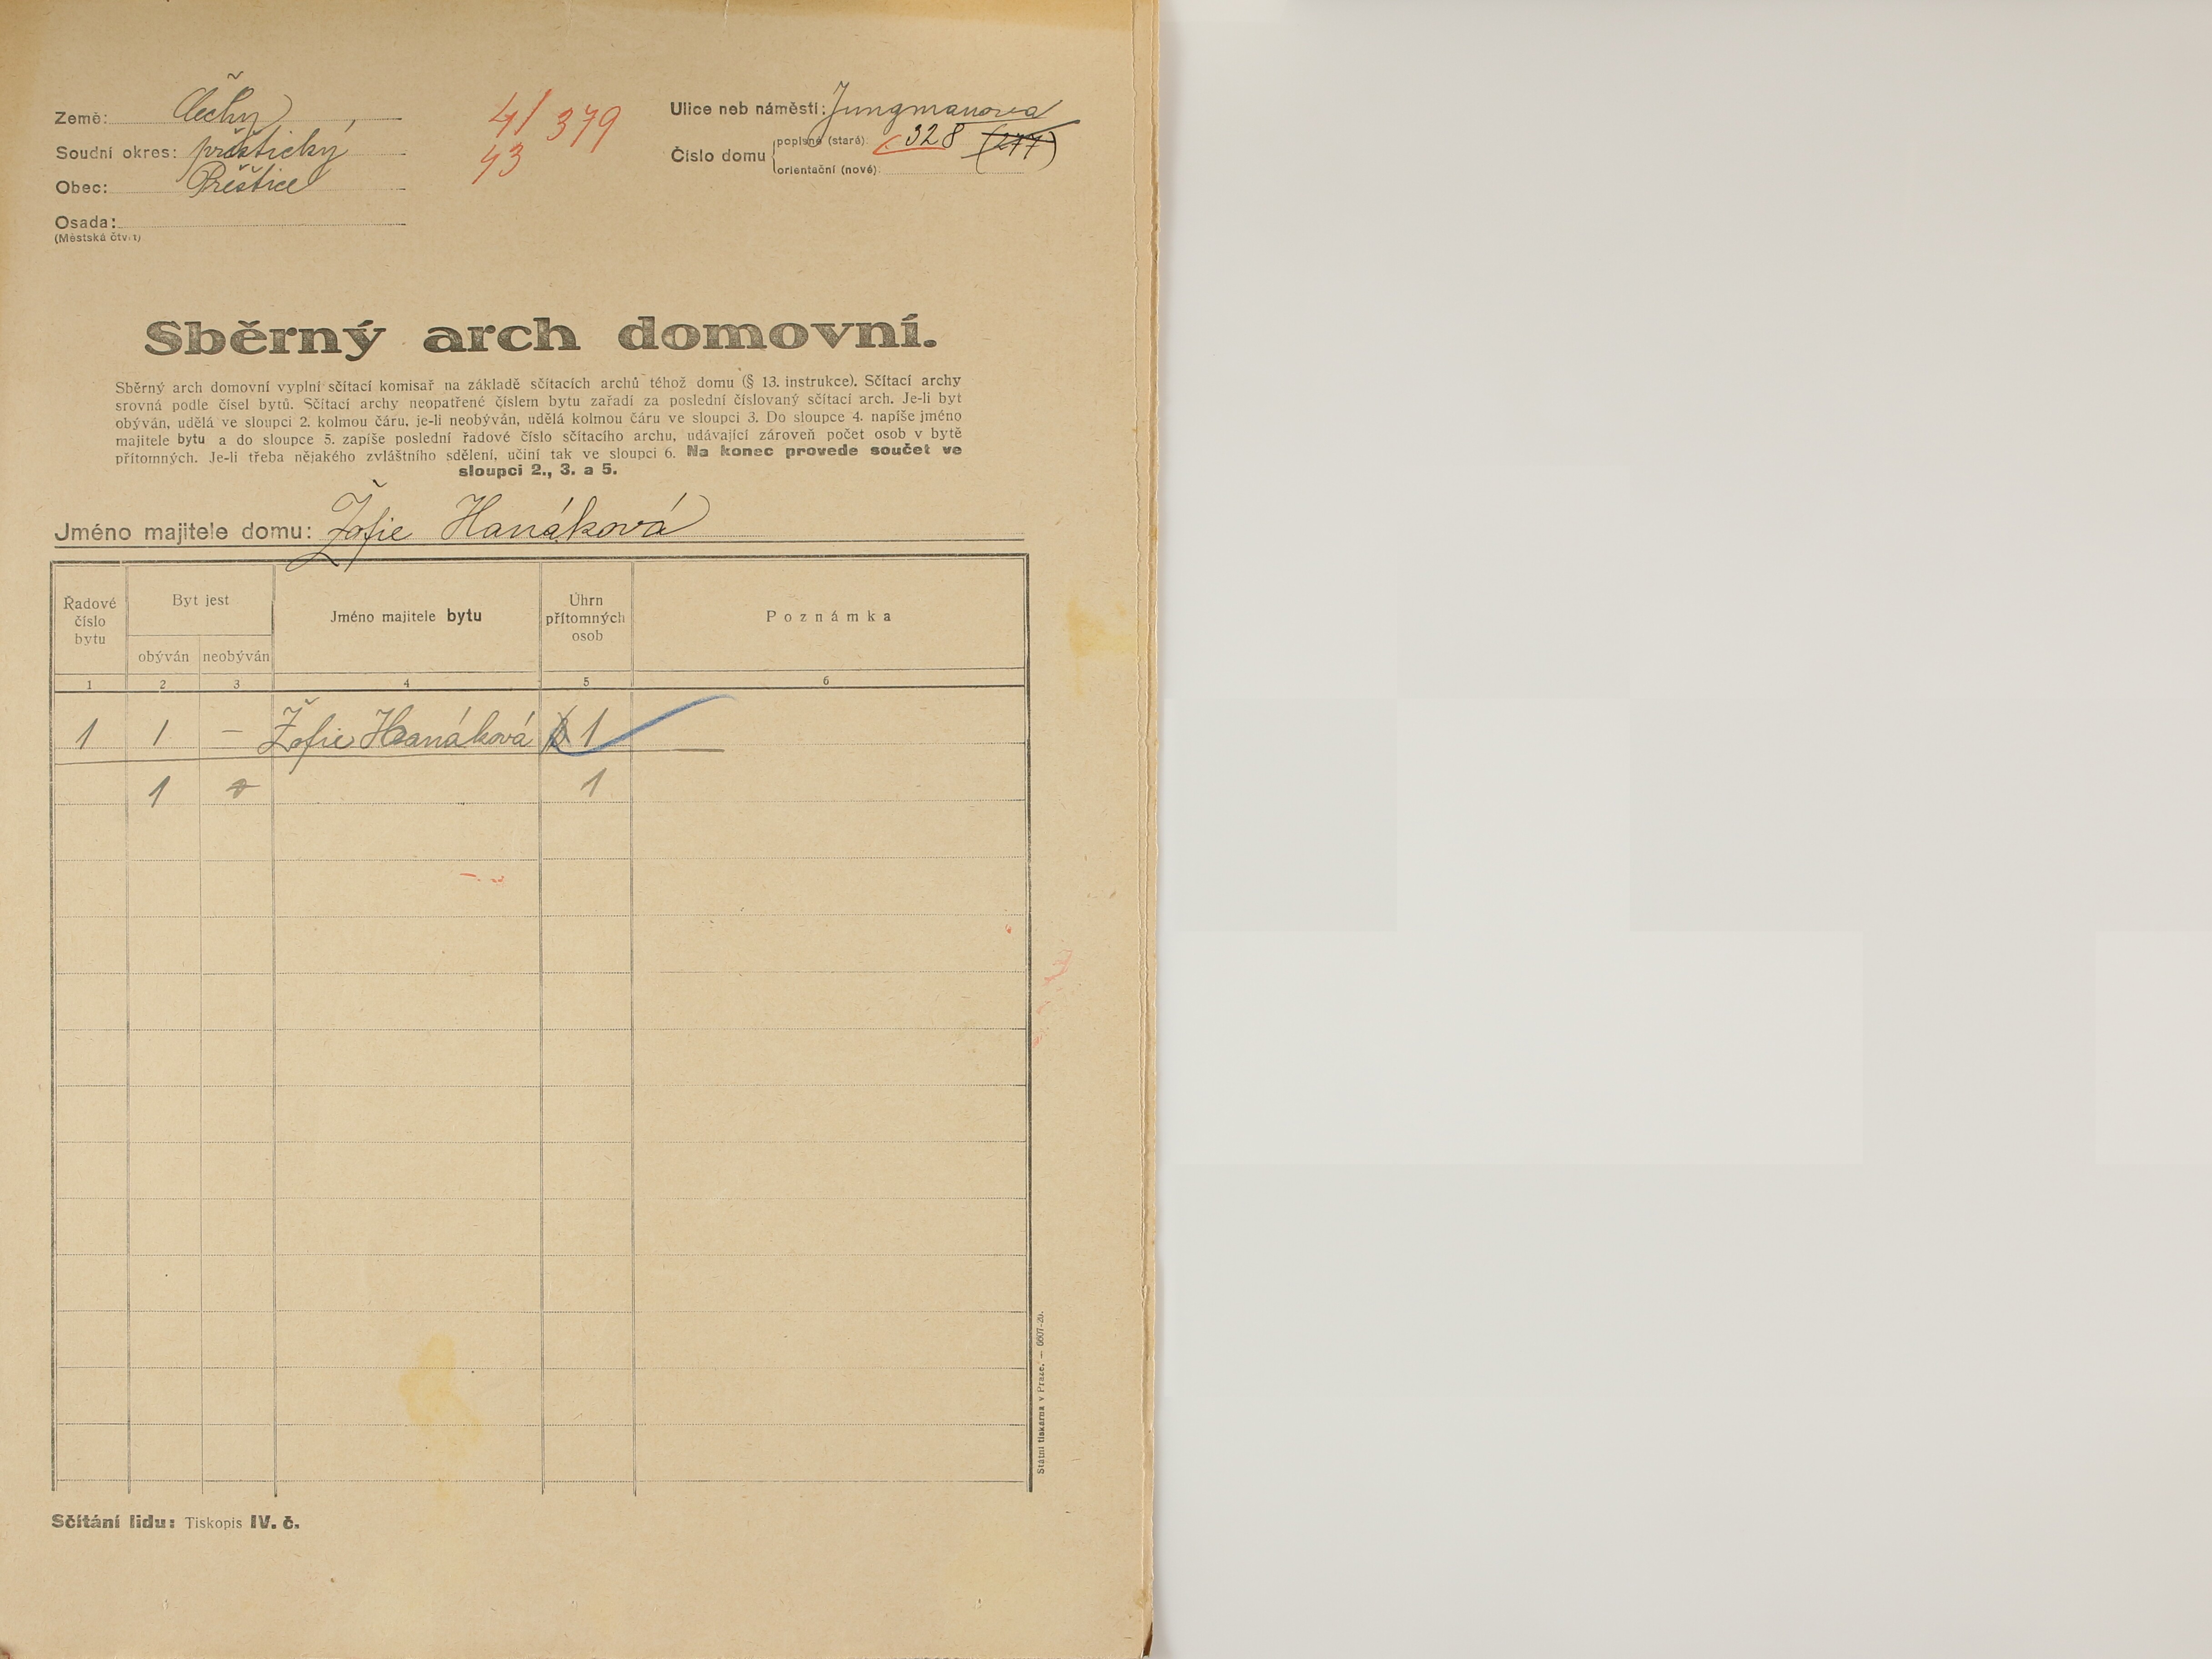 Země: Čechy
Soudní okres: přeštický
Obec: Přeštice
Osada:
(Městská čtvrt)
41/379
43
Ulice neb náměstí: Jungmanova
Číslo domu popisné (staré): 328 (277)
orientační (nové):
Sběrný arch domovní.
Sběrný arch domovní vyplní sčítací komisař na základě sčítacích archů téhož domu (§ 13. instrukce). Sčítací archy
srovná podle čísel bytů. Sčítací archy neopatřené číslem bytu zařadí za poslední číslovaný sčítací arch. Je-li byt
obýván, udělá ve sloupci 2. kolmou čáru, je-li neobýván, udělá kolmou čáru ve sloupci 3. Do sloupce 4. napíše jméno
majitele bytu a do sloupce 5. zapíše poslední řadové číslo sčítacího archu, udávající zároveň počet osob v bytě
přítomných. Je-li třeba nějakého zvláštního sdělení, učiní tak ve sloupci 6. Na konec provede součet ve
sloupci 2., 3. a 5.
Jméno majitele domu: Žofie Hanáková
Řadové číslo bytu
Byt jest
obýván neobýván
Jméno majitele bytu
Úhrn přítomných osob
Poznámka
1 2 3 4 5 6
1 1 – Žofie Hanáková 1
1 1
Státní tiskárna v Praze. — 6607-20.
Sčítání lidu: Tiskopis IV. č.